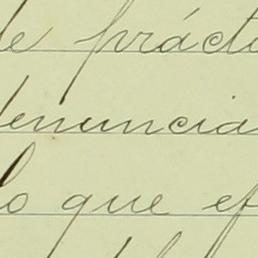 de práct
denuncia
lo que ef